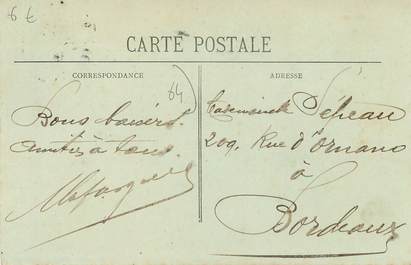 6 €
CARTE POSTALE
CORRESPONDANCE
ADRESSE
64
Bons baisers.
Amitiés à tous
Mademoiselle Pépeau
209. Rue d'Ornano
à
Bordeaux